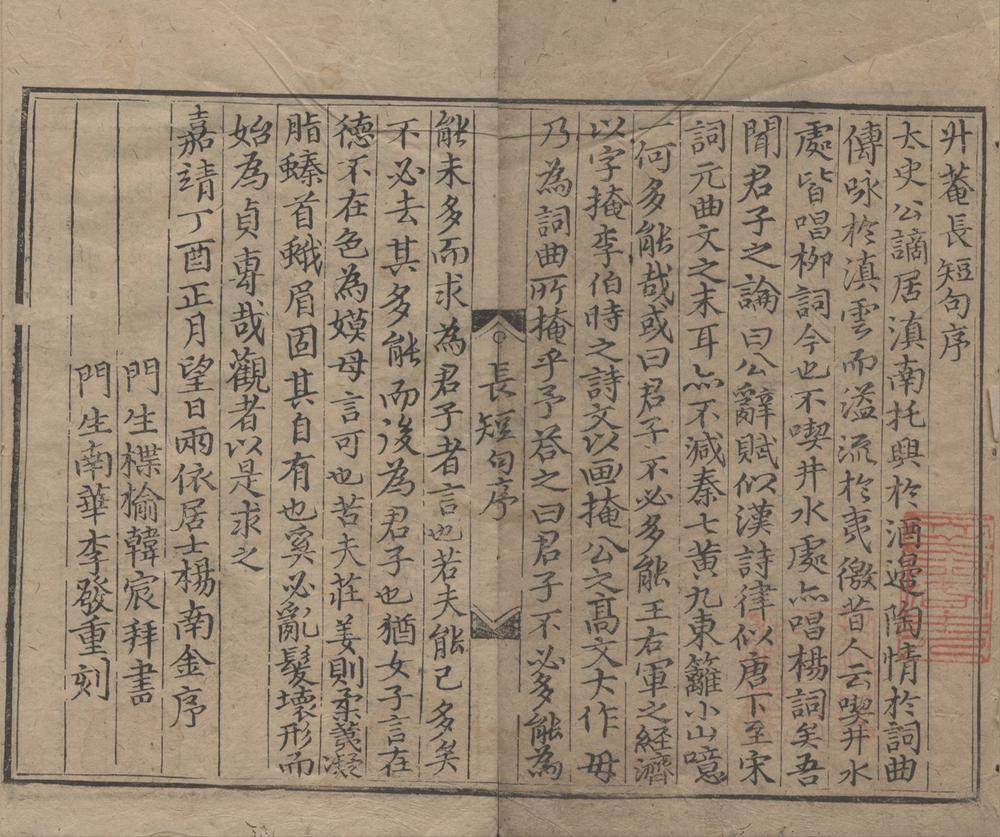 升菴長短句序
太史公謫居滇南托興於酒邊陶情於詞曲
傳咏於滇雲而溢流於夷徼昔人云喫井水
處皆唱栁詞今也不喫井水處亦唱楊詞矣吾
聞君子之論曰公辭賦似漢詩律似唐下至宋
詞元曲文之末耳亦不減秦七黄九東籬小山噫
一何多能哉或曰君子不必多能王右軍之經濟
以字掩李伯時之詩文以画掩公之高文大作毋
乃為詞曲所掩乎予荅之曰君子不必多能為
長短句序
能未多而求為君子者言也若夫能已多矣
不必去其多能而後為君子也猶女子言在
德不在色為嫫母言可也若夫莊姜則柔荑凝
脂螓首蛾眉固其自有也奚必亂髮壞形而
始為貞專哉觀者以是求之
嘉靖丁酉正月望日兩依居士楊南金序
門生楪榆韓宸拜書
門生南華李發重刻